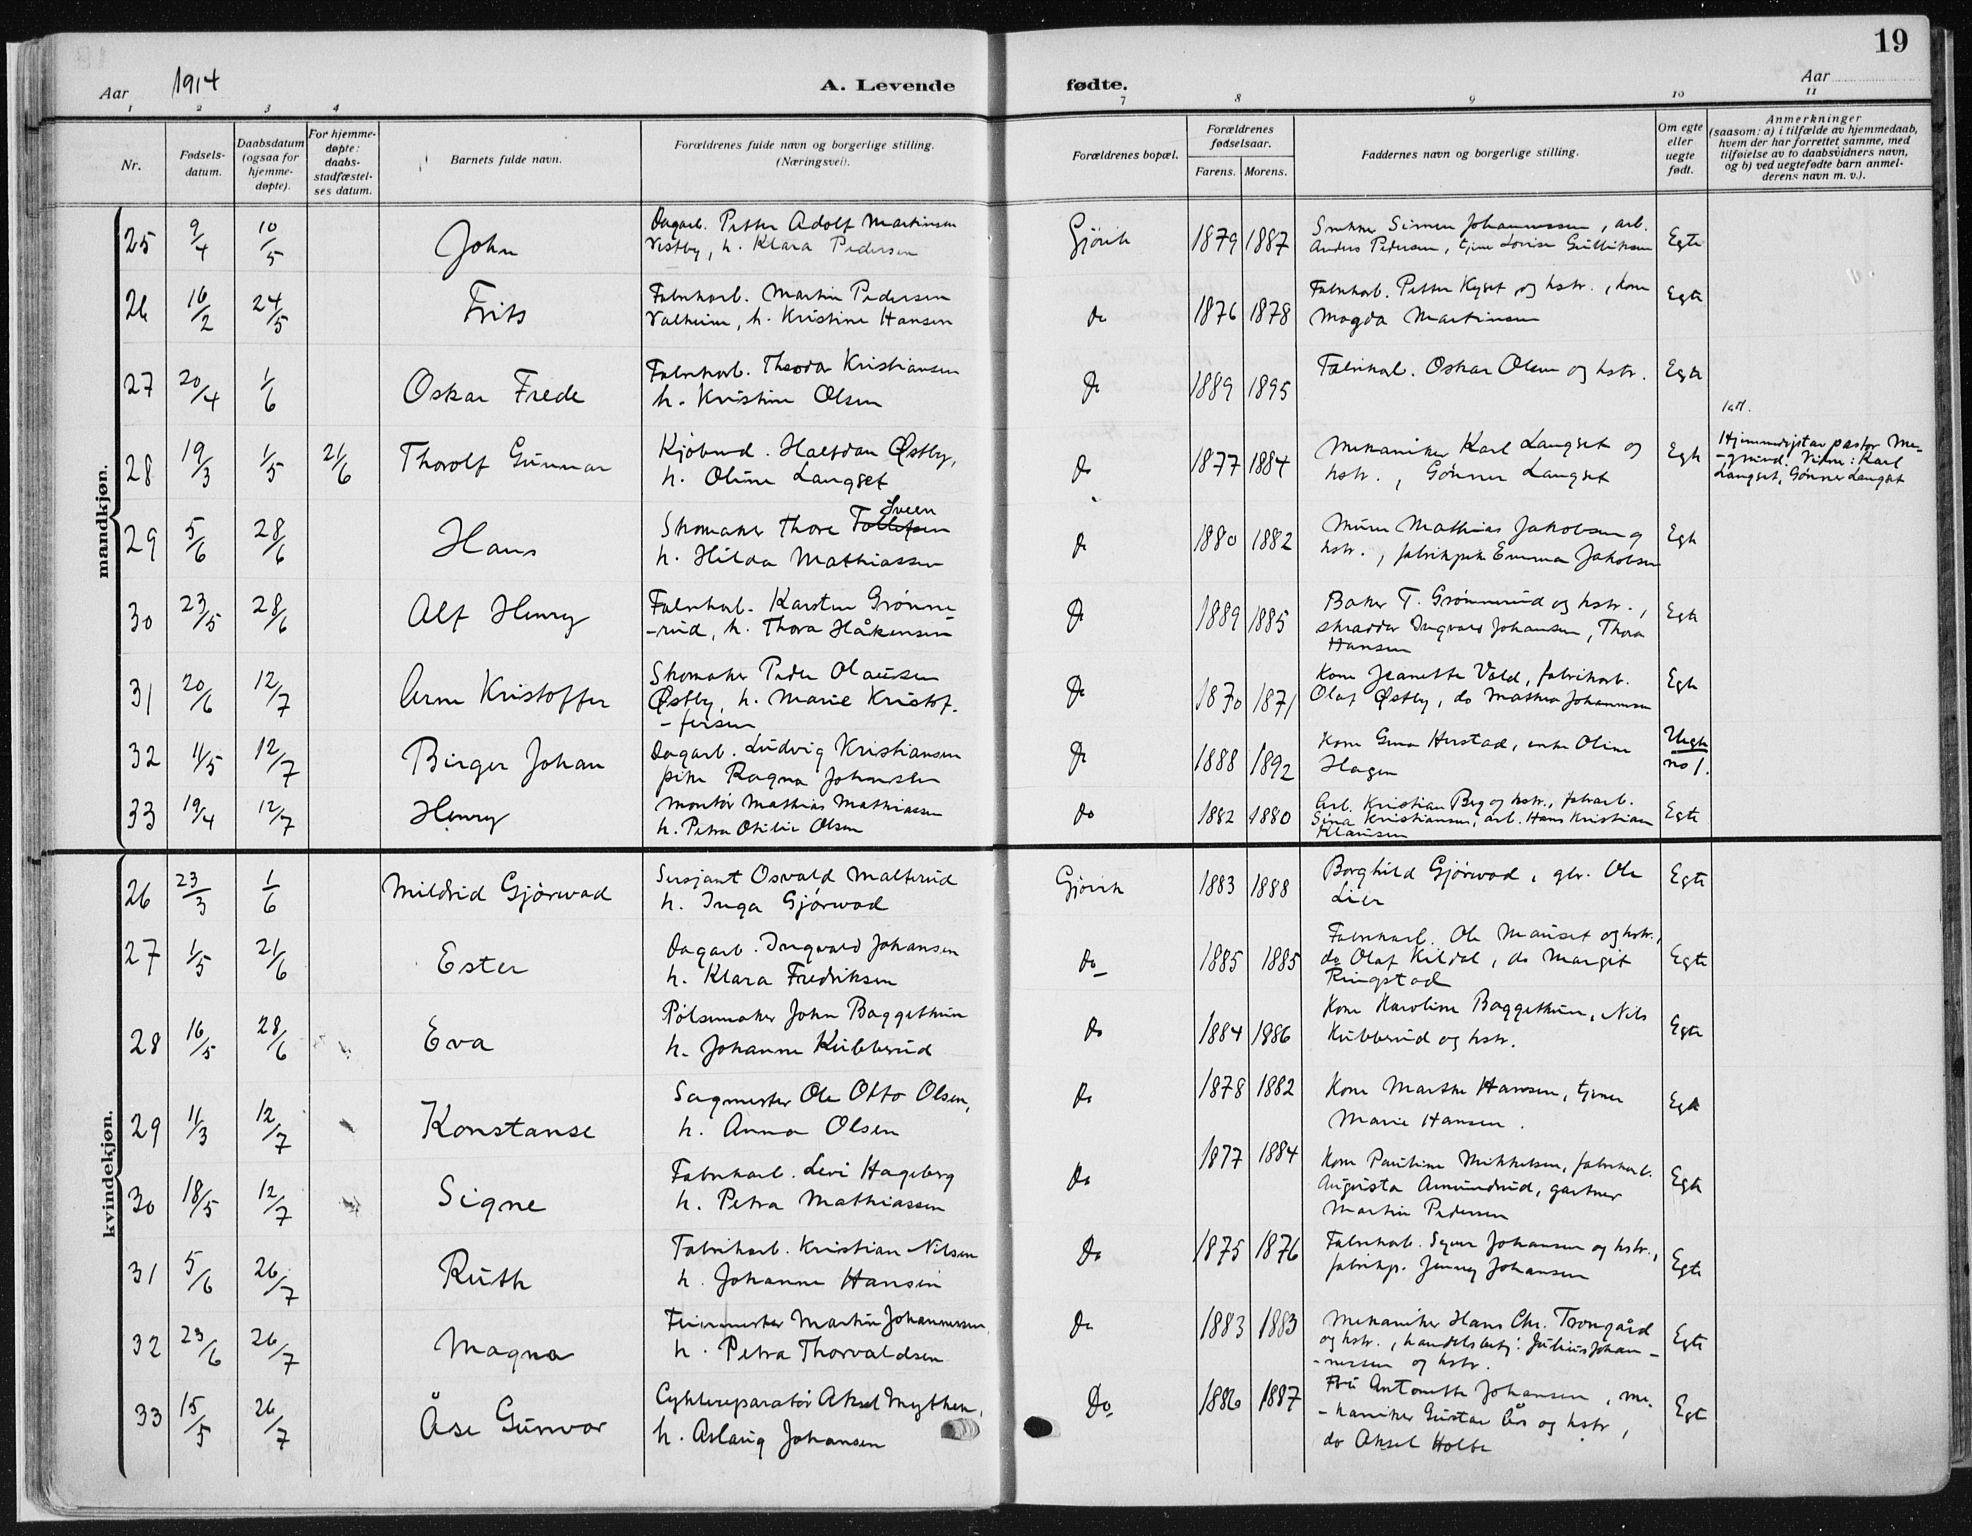 19
Aar 1914
A. Levende fødte.
Aar
1 2 3 4 7 8 9 10 11
Nr.
Fødsels-
datum.
Daabsdatum
(ogsaa for
hjemme-
døpte).
For hjemme-
døpte:
daabs-
stadfæstel-
ses datum.
Barnets fulde navn.
Forældrenes fulde navn og borgerlige stilling.
(Næringsvei).
Forældrenes bopæl.
Forældrenes
fødselsaar.
Farens. Morens.
Faddernes navn og borgerlige stilling.
Om egte
eller
uegte
født.
Anmerkninger
(saasom: a) i tilfælde av hjemmedaab,
hvem der har forrettet samme, med
tilføielse av to daabsvidners navn,
og b) ved uegtefødte barn anmel-
derens navn m. v.).
mandkjøn.
25 9/4 10/5 John
Dagarb. Petter Adolf Martinsen
Vestby, h. Klara Pedersen
Gjøvik 1879 1887
Snekker Simen Johannessen, arb.
Anders Pedersen, tjene Lovise Gulliksen
Egte
26 16/2 24/5 Frits
Fabrikarb. Martin Pedersen
Valheim, h. Kristine Hansen
Do 1876 1878
Fabrikarb. Petter Kyset og hstr., kone
Magda Martinsen
Egte
27 20/4 1/6 Oskar Frede
Fabrikarb. Theodor Kristiansen
h. Kristine Olsen
Do 1889 1895
Fabrikarb. Oskar Olsen og hstr.
Egte
28 19/3 1/5 21/6 Thorolf Gunnar
Kjøbmd. Halfdan Østby,
h. Oline Langset
Do 1877 1884
Mekaniker Karl Langset og
hstr., Gønner Langset
Egte
1att.
Hjemmedøpt av pastor Me-
-grund. Vidne: Karl
Langset, Gønner Langset
29 5/6 28/6 Hans
Sveen
Skomaker Thore Tollefsen
h. Hilda Mathiassen
Do 1880 1882
Murer Mathias Jakobsen og
hstr., fabrikpike Emma Jakobsen
Egte
30 23/5 28/6 Alf Henry
Fabrikarb. Karsten Grønne-
-rud, h. Thora Håkensen
Do 1889 1885
Baker T. Grønnerud og hstr.,
skrædder Ingvald Johansen, Thora
Hansen
Egte
31 20/6 12/7 Arne Kristoffer
Skomaker Peder Olausen
Østby, h. Marie Kristof-
-fersen
Do 1870 1871
Kone Jeanette Vold, fabrikarb.
Olaf Østby, do Mathea Johannesen
Egte
32 11/5 12/7 Birger Johan
Dagarb. Ludvig Kristiansen
pike Ragna Johansen
Do 1888 1892
Kone Gina Herstad, enke Oline
Hagen
Uegte
no 1.
33 19/4 12/7 Henry
Montør Mathias Mathiassen
h. Petra Otilie Olsen
Do 1882 1880
Arb. Kristian Berg og hstr., fabrarb.
Sina Kristiansen, arb. Hans Kristian
Klausen
Egte
kvindekjøn.
26 23/3 1/6 Mildrid Gjørwad
Sersjant Osvald Malterud
h. Inga Gjørwad
Gjøvik 1883 1888
Borghild Gjørwad, gbr. Ole
Lier
Egte
27 1/5 21/6 Ester
Dagarb. Ingvald Johansen
h. Klara Fredriksen
Do 1885 1885
Fabrikarb. Ole Mauset og hstr.,
do Olaf Kildal, do Margit
Ringstad
Egte
28 16/5 28/6 Eva
Pølsemaker John Baggethun
h. Johanne Kubberud
Do 1884 1886
Kone Karoline Baggethun, Nils
Kubberud og hstr.
Egte
29 11/3 12/7 Konstanse
Sagmester Ole Otto Olsen,
h. Anna Olsen
Do 1878 1882
Kone Marthe Hansen, tjener
Marie Hansen.
Egte
30 18/5 12/7 Signe
Fabrikarb. Levi Hageberg
h. Petra Mathiassen
Do 1877 1884
Kone Pauline Mikkelsen, fabrikarb.
Augusta Amundrud, gartner
Martin Pedersen
Egte
31 5/6 26/7 Ruth
Fabrikarb. Kristian Nilsen
h. Johanne Hansen
Do 1875 1876
Fabrikarb. Syver Johansen og hstr.,
fabrikp. Jenny Johansen
Egte
32 23/6 26/7 Magna
Martin Johannessen,
h. Petra Thorvaldsen
Do 1883 1883
Mekaniker Hans Chr. Tromgård
og hstr., handelsbetj: Julius Johan-
-nessen og hstr.
Egte
33 15/5 26/7 Åse Gunvor
Cyklereparatør Aksel Mythen,
h. Aslaug Johansen
Do 1886 1887
Fru Antonette Johansen, me-
-kaniker Gustav Ås og hstr,
do Aksel Holte
Egte